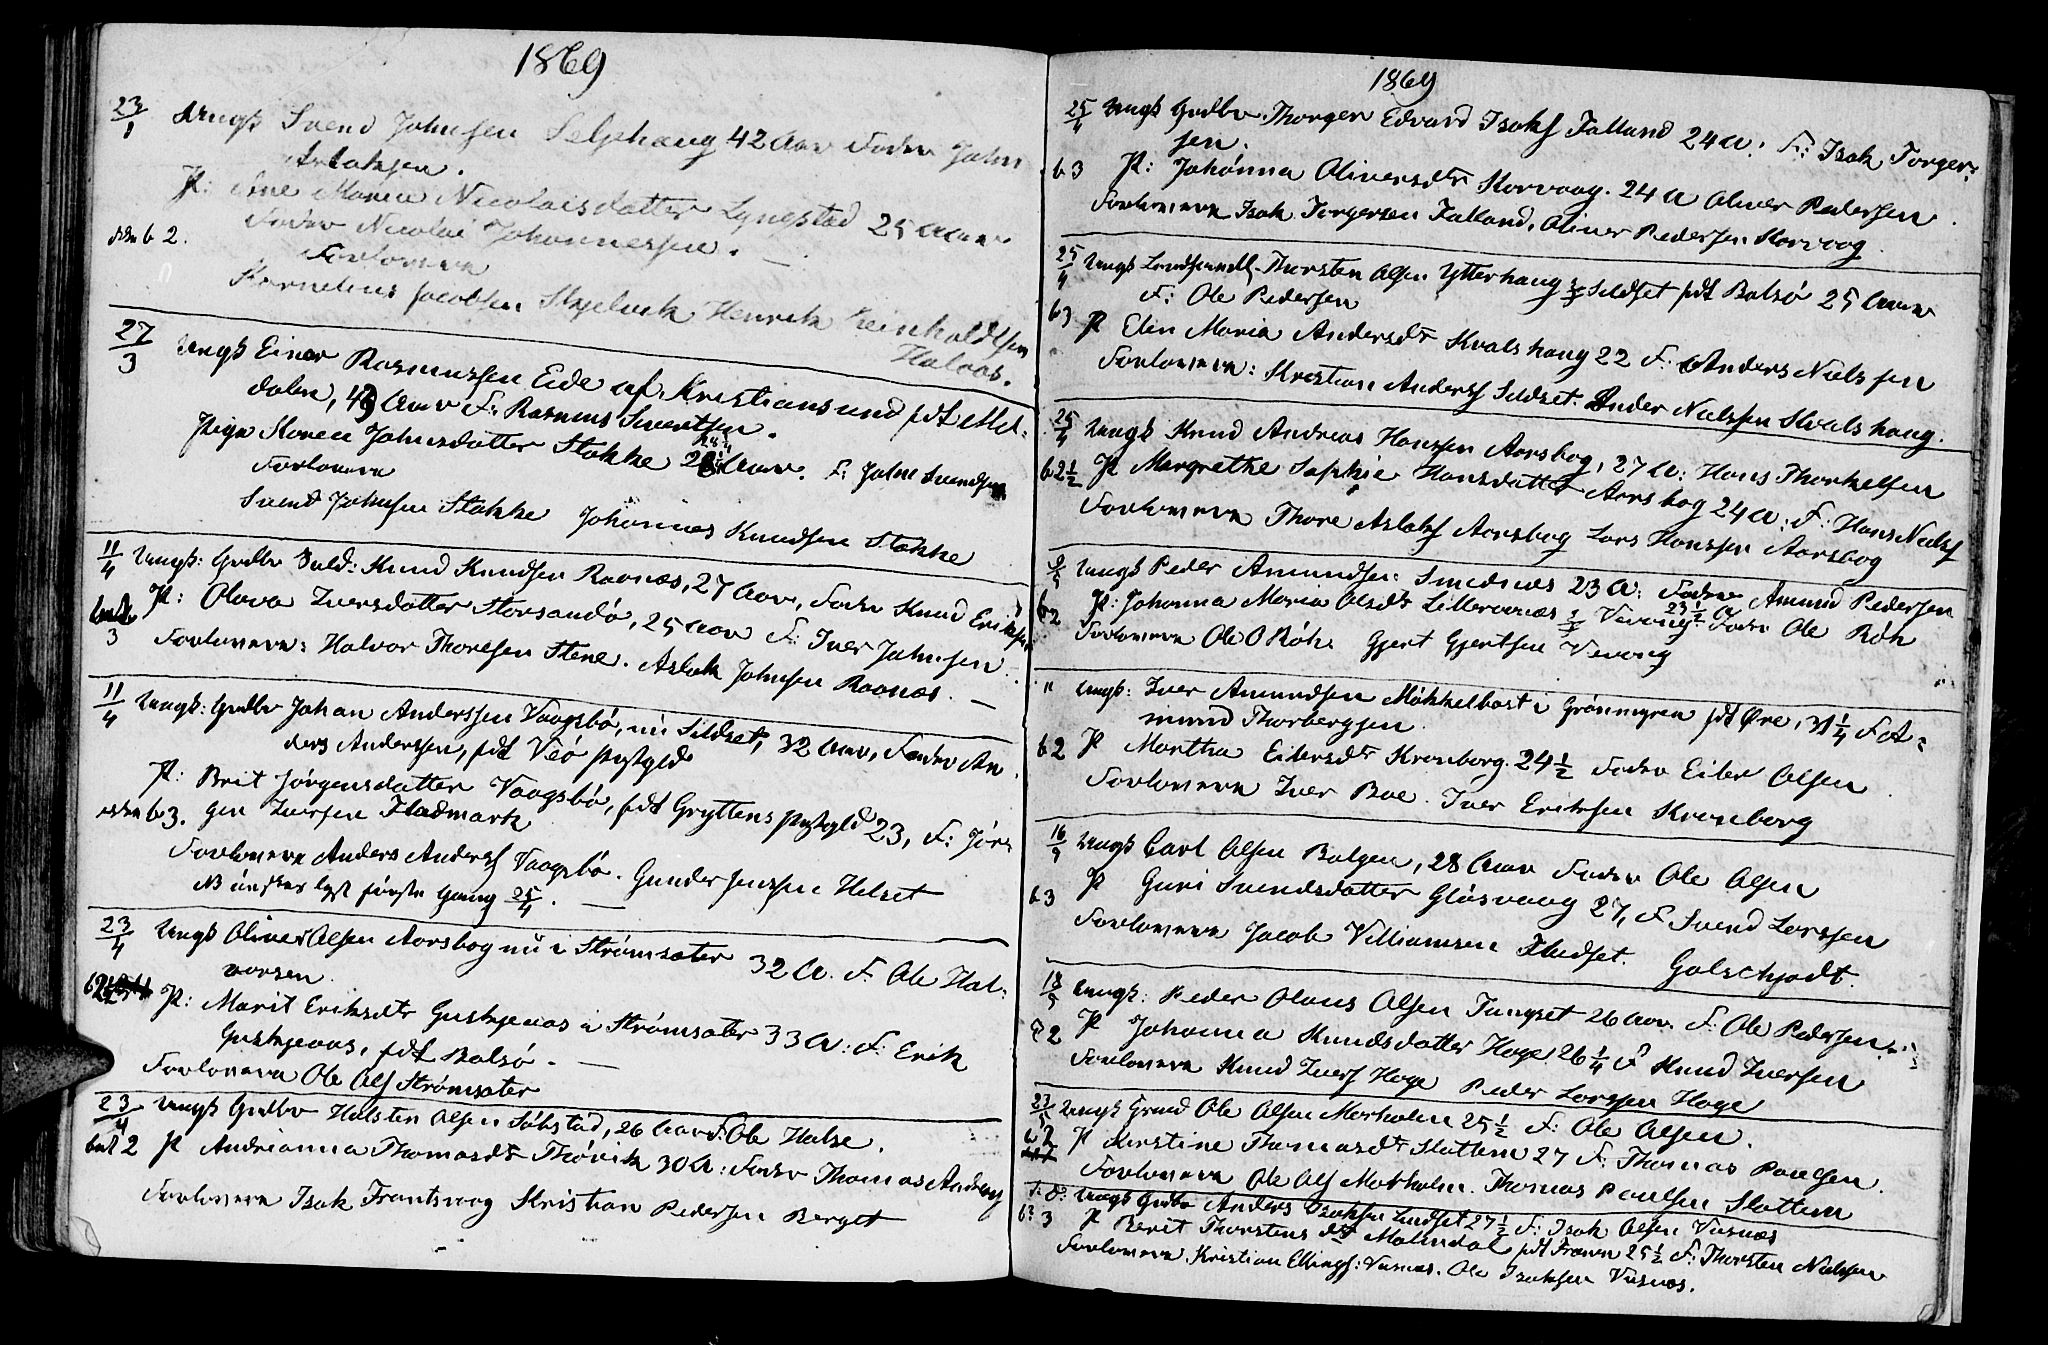 1869
23/1 Ungk Svend Johnsen Seljehaug 42 Aar Fader John
Aslaksen.
P: Ane Maria Nicolaisdatter Lyngstad 25 Aar
Fader Nicolai Johannessen.
b 2.
Forlovere
Kornelius Jacobsen Henrik Reinholdsen
27/3 Ungk Einar Rasmussen Eide af Kristiansund fdt Mel-
dalen, 43 Aar F: Rasmus Sivertsen.
Pige Maren Johnsdatter Stokke Aar. F: John Svendsen
Forlovere
Svend Johnsen Stokke Johannes Knudsen Stokke
11/4 Ungk: Grdbr Sold: Knud Knudsen Raanæs, 27 Aar, Fader Knud Eriksen
P: Olava Iversdatter Storsandø, 25 Aar F: Iver Johnsen
3 Forlovere: Halvor Thoresen Stene. Aslak Johnsen Raanæs.
11/4 Ungk: Grdbr Johan Anderssen Vaagsbø, nu Sildset, 32 Aar, Fader An
ders Anderssen, fdt Veø Prstgld
P: Brit Jørgensdatter Vaagsbø, fdt Gryttens Prstgld 23, F: Jør-
b 3. gen Iversen Fladmark
Forlovere Anders Anders Vaagsbø. Gunder Jenssen Helset
NB ønskes lyst første Gang 25/4.
23/4 Ungk Oliver Olsen Aarsbog nu i Strømsæter 32 A. F: Ole Hal-
vorsen.
P: Marit Eriksdtr Guskjenaas i Strømsæter 33 A: F: Erik
Guskjenaas, fdt Bolsø.
Forlovere Ole Ols Strømsæter
23/4 Ungk Grdbr Halsten Olsen Søbstad, 26 Aar F: Ole Halse.
2 P Andrianna Thomasdtr Thøvik 30 A: Fader Thomas Anders
Forlovere Isak Frantsvog Kristian Pedersen Berget
1869
25/4 Ungk Grdbr. Thorger Edvard Isaks Falland 24 A: F: Isak Torger-
sen.
b 3 P: Johanna Oliversdtr Korvaag. 24 A Oliver Pedersen
Forlovere Isak Torgersen Falland, Oliver Pedersen Korvaag.
25/4 Ungk Thorsten Olsen Ytterhaug Sildset fdt Bolsø 25 Aar
F: Ole Pedersen
b 3 P Elin Maria Andersdtr Kvalshaug 22 F: Anders Nielssen
Forlovere: Kristian Anders Sildset. Ander Nielssen Kvalshaug.
25/4 Ungk Knud Andreas Hanssen Aarsbog, 27 A: Hans Thorkelsen
b 2½ P Margrethe Sophie Hansdatter Aarsbog 24 A: F: Hans Niels
Forlovere Thore Aslaks Aarsbog Lars Hanssen Aarsbog
Ungk Peder Amundsen Smednes 23 A: Fader Amund Pedersen
b 2 P: Johanna Maria Olsdtr Lillevevang 23½ A Fader Ole Røh
Forlovere Ole O Røh. Gjert Gjertsen Vevang
Ungk: Iver Amundsen Møkkelbost i Grønmyren fdt Øre, 31¼ F A-
mund Thorbergsen
b 2 P Martha Eilersdtr Kronborg. 24½ Fader Eiler Olsen
Forlovere Iver Boe. Iver Eriksen Kronborg
Ungk Carl Olsen Bolgen, 28 Aar Fader Ole Olsen
b 3 P Guri Svendsdatter Gløsvaag 27, F Svend Larssen
Forlovere Jacob Villiamsen Fludset. Galschjødt.
Ungk: Peder Olaus Olsen Tungset 26 Aar. F: Ole Pedersen
2 P Johanna Knudsdatter Hoge 26¼ F Knud Iversen
Forlovere Knud Ivers Hoge Peder Larssen Hoge
Ungk Ole Olsen Morholm 25½ F: Ole Olsen.
P Kerstine Thomasdtr Slattem 27 F: Thomas Poulsen.
Forlovere Ole Ols Morholm. Thomas Poulsen Slattem
Ungk Grdbr Anders Isaksen Lindset 27½ F: Isak Olsen Vasnæs
3 P Berit Thorstensdtr Malmdal fdt Frænen 25½ F: Thorsten Nielssen
Forlovere. Kristian Ellings: Vasnæs. Ole Isaksen Vasnæs.